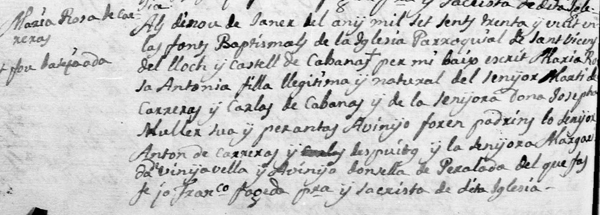 Maria Rosa de Car
reras
+ fou batejada
Als dinou de Janer del any mil set sents trenta y vuit en
las fonts Baptismals de la Iglesia Parroquial de sant Vicens
del lloch y Castell de Cabanas + per mi baix escrit Maria Ro
sa Antonia filla llegitima y natural del senyor Marti de
Carreras y Carles de Cabanas y de la senyora Dona Josepha
Muller sua y perantas Avinyo foren padrins lo senyor
Anton de Carreras y despuibg y la senyora Margari
da vinyavella y Avinyo donsella de Peralada del que fas
fe jo Franco pra y sacrista de dita Iglesia